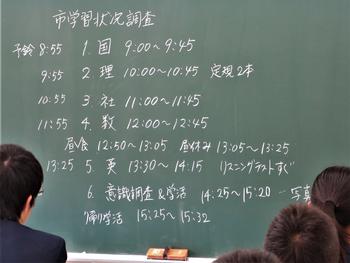 市学習状況調査
予鈴 8:55 1. 国 9:00〜9:45
9:55 2. 理 10:00〜10:45 定規2本
10:55 3. 社 11:00〜11:45
11:55 4. 数 12:00〜12:45
昼食 12:50〜13:05 昼休み 13:05〜13:25
13:25 5. 英 13:30〜14:15 リスニングテストすぐ
6. 意識調査&学活 14:25〜15:20 -写真
帰り学活 15:25〜15:32